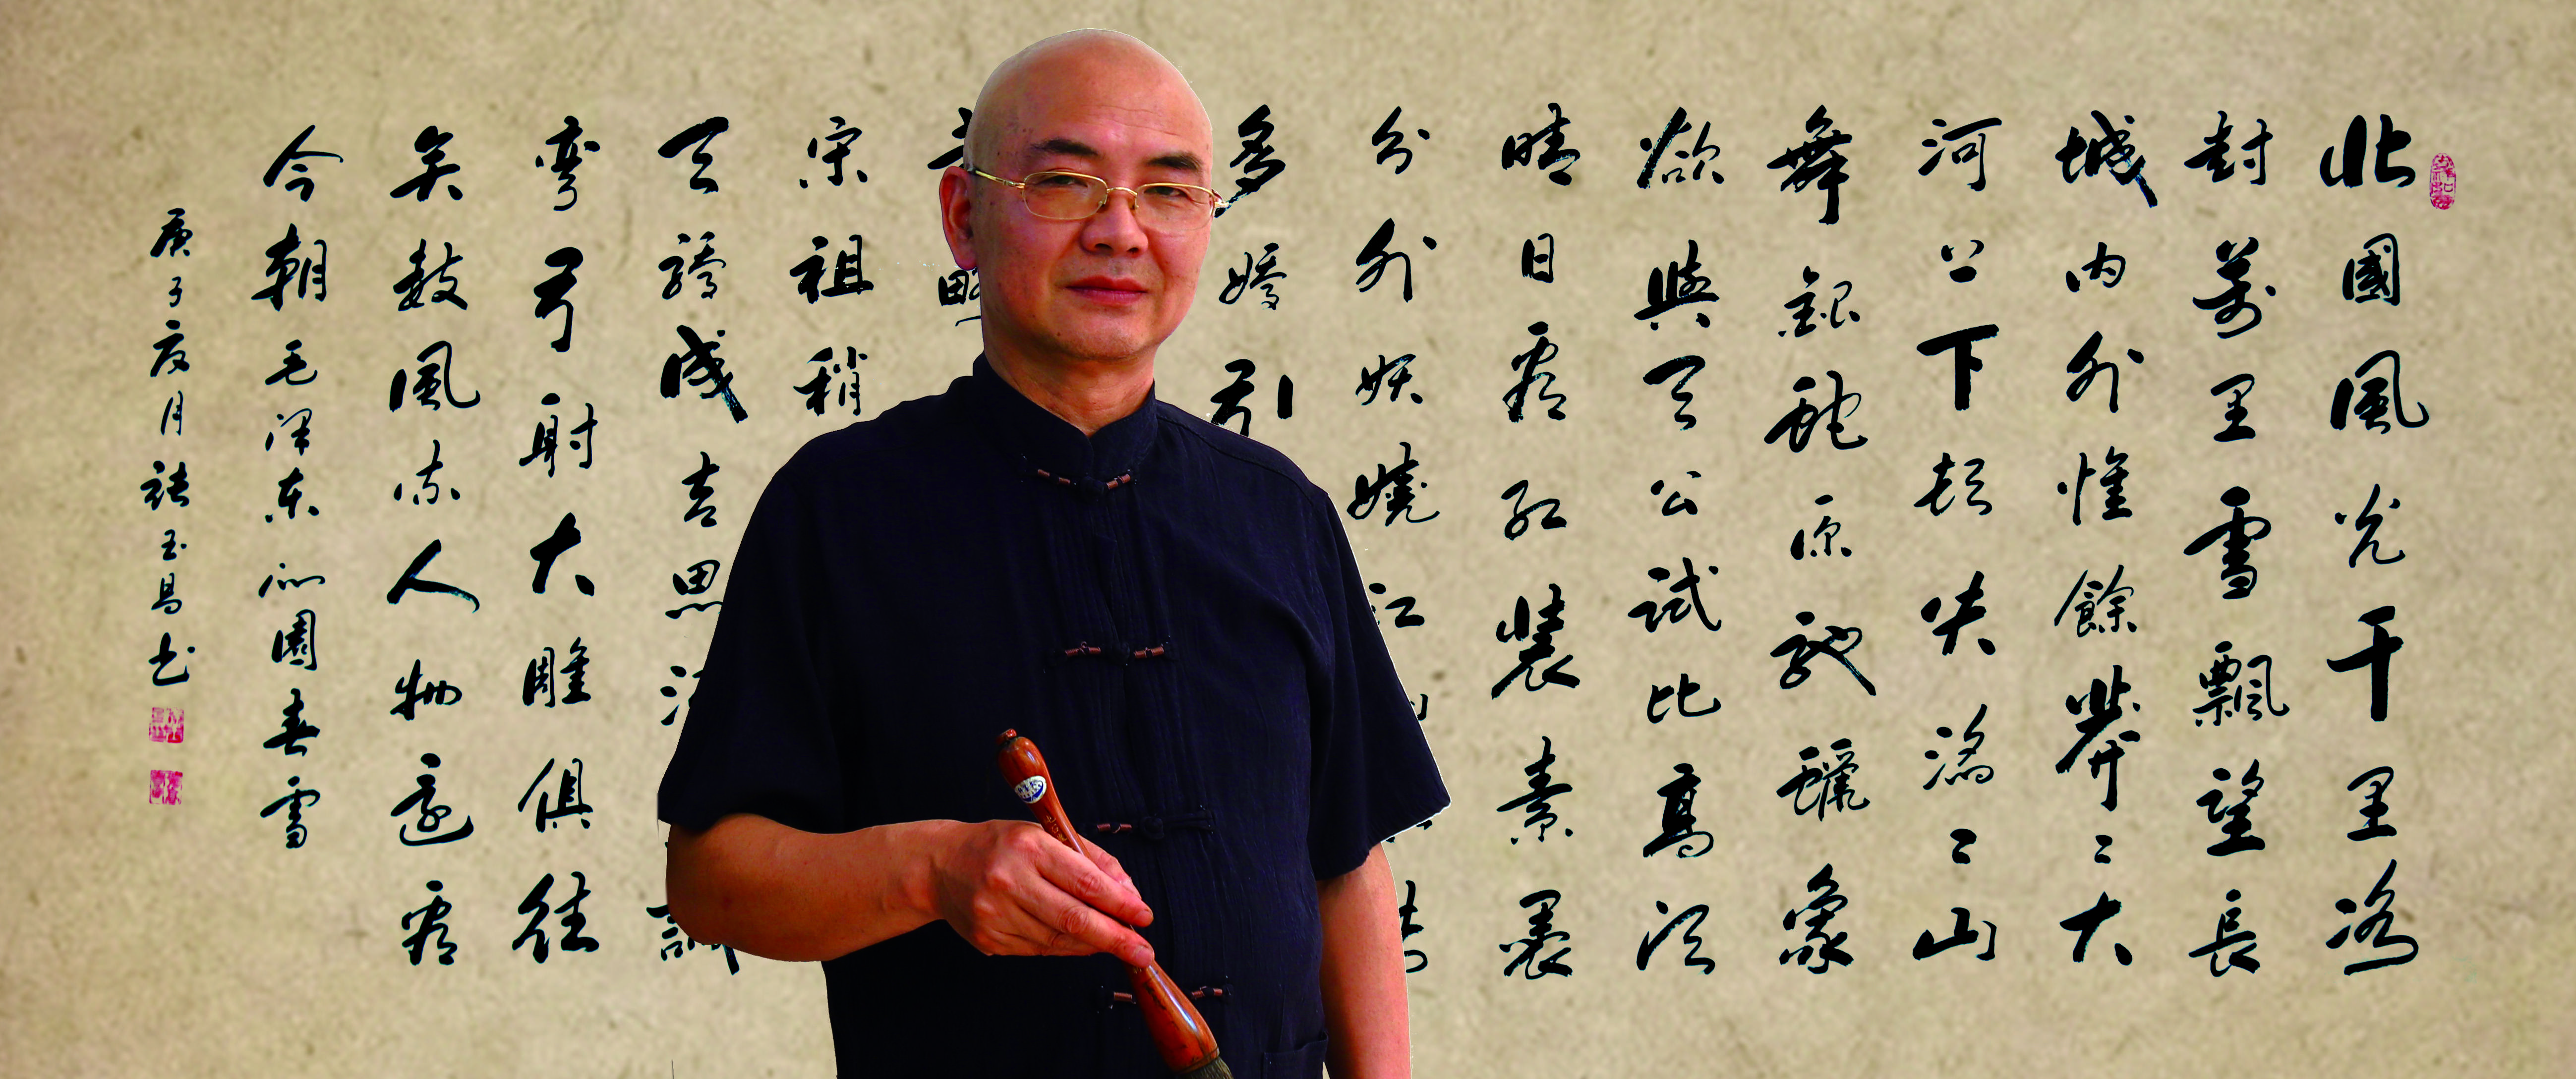 北國風光千里冰
封萬里雪飄望長
城内外惟餘莽〻大
河上下頓失滔〻山
舞銀蛇原馳蠟象
欲與天公試比高須
晴日看紅裝素裹
分外妖嬈江
多嬌引
宋祖稍
天驕成吉思
彎弓射大雕俱往
矣數風流人物還看
今朝毛澤東沁園春雪
庚子夏月張玉昌书